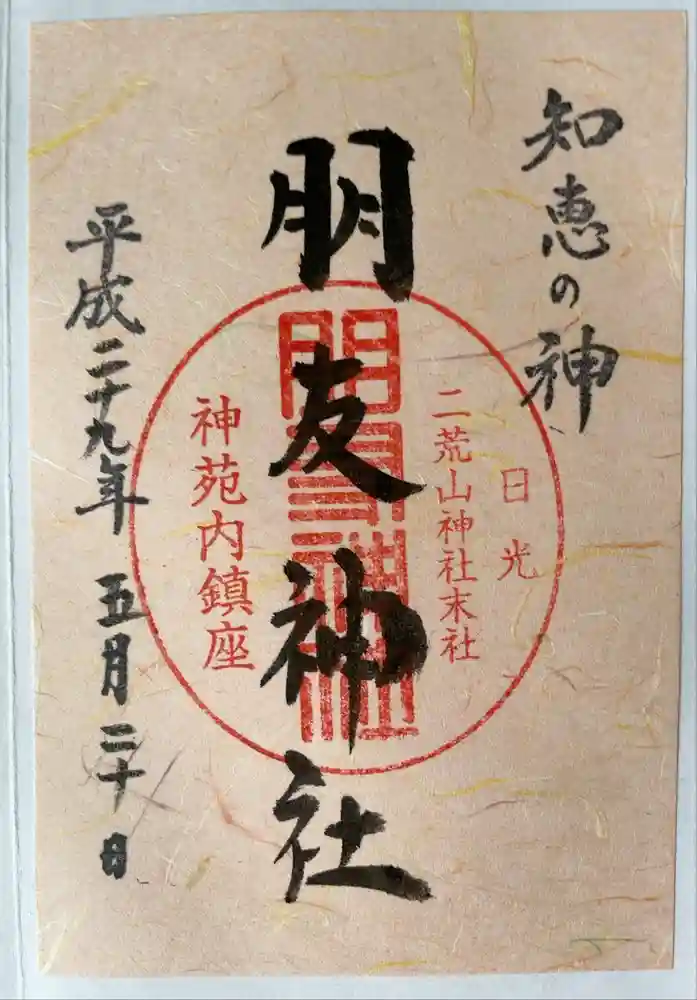 知恵の神
日光
二荒山神社末社
朋友神社
朋友神社
神苑内鎮座
平成二十九年 五月二十日